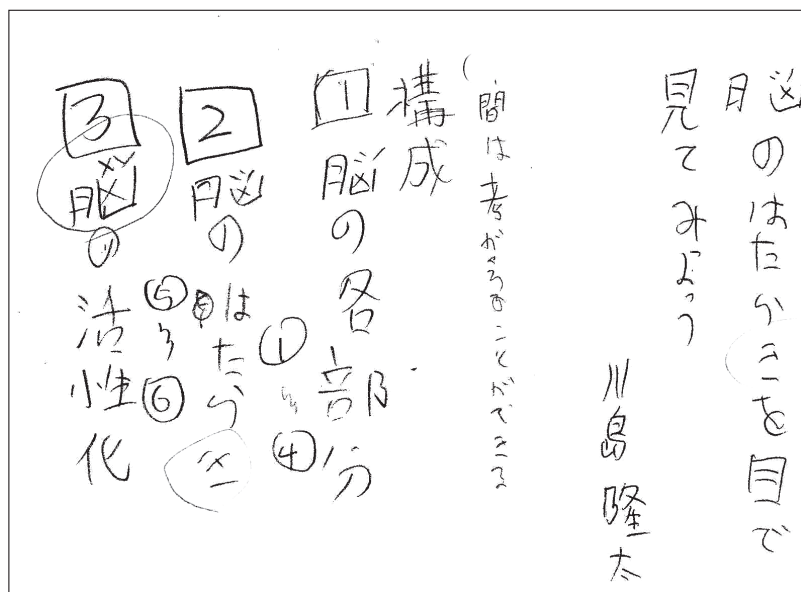 脳のはたらきを目で
見てみよう
川島 隆太
間は考がえることができる
構成
1 脳の各部分
①
④
2 脳のはたらき
⑤
⑥
3 脳の活性化